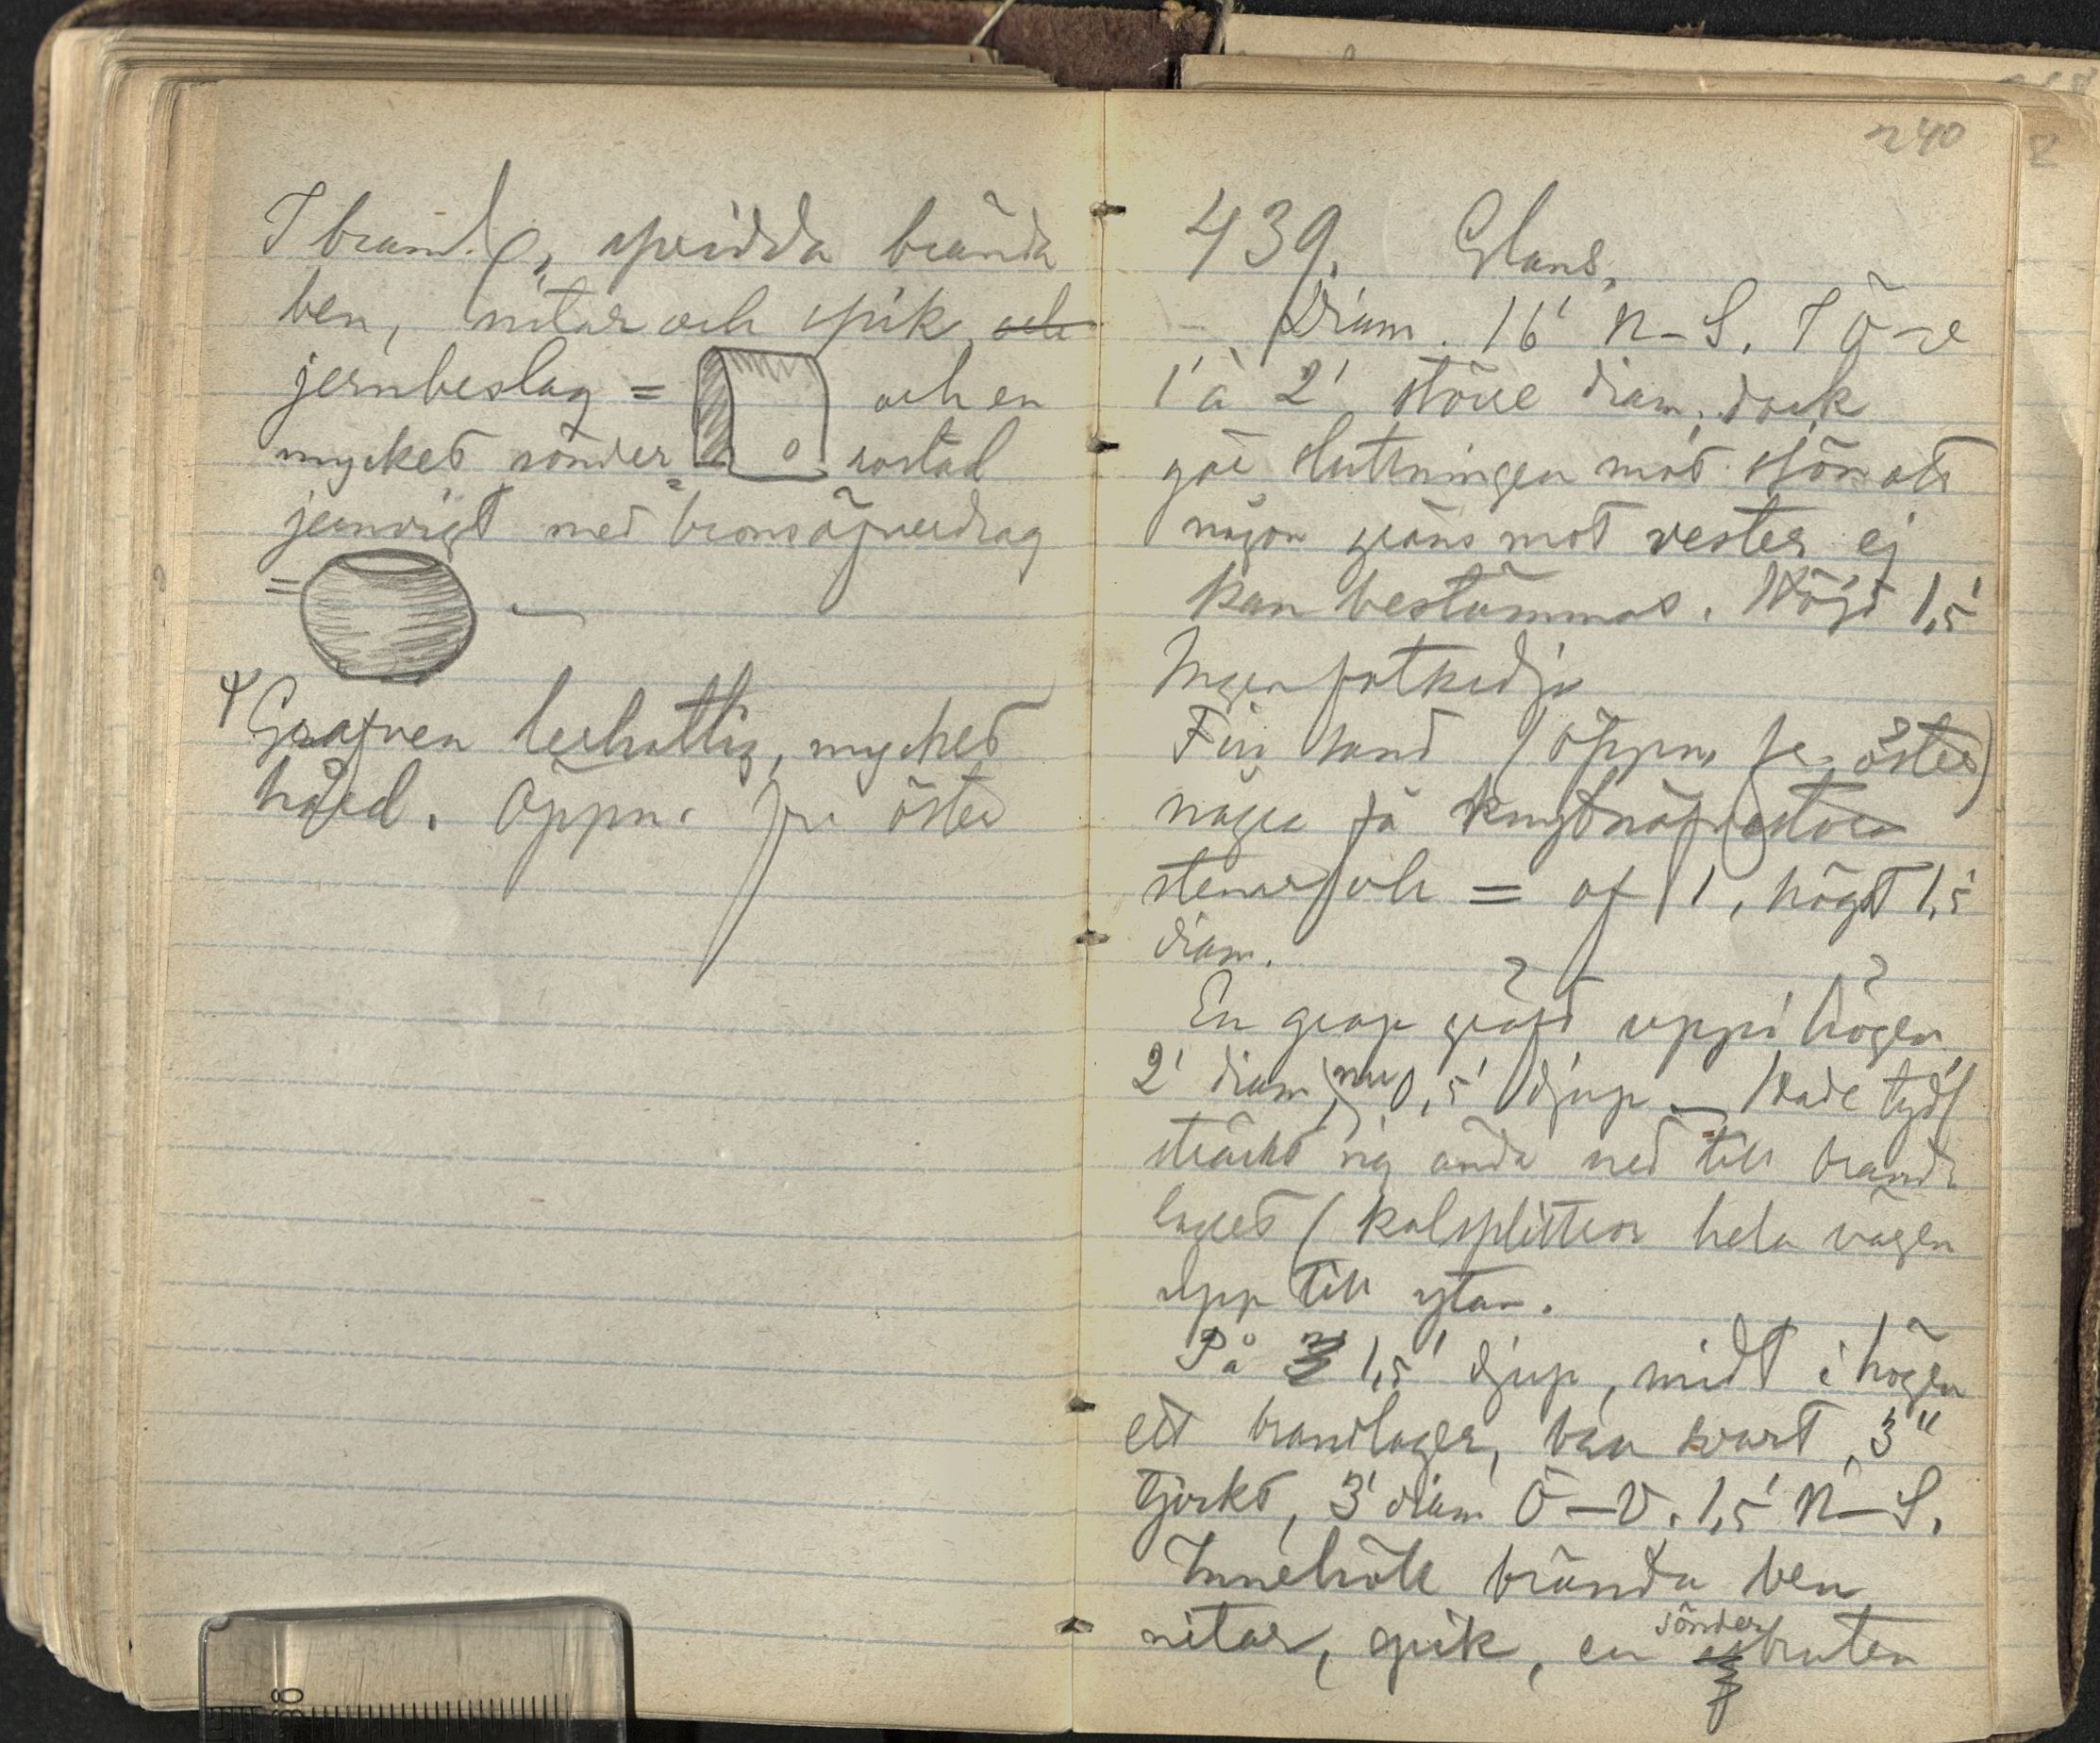 I brandl., spridda brända
ben, nitar och spik, och
jernbeslag = och en
mycket sönder= rostad
jernvigt med bronsöfverdrag
=
Grafven lerhaltig, mycket
hård. Öppn. fr. öster
240
439. Glans.
Diam. 16' N–S. I Ö–V
1' à 2' större diam., dock
gör sluttningen mot sjön att
någon gräns mot vester ej
kan bestämmas. Höjd 1,5'
Ingen fotkedja
Fin sand (öppn. fr. öster)
några få knytnäfvestora
stenar och = af 1, högst 1,5'
diam.
En grop gräfd uppi högen
2' diam, nu 0,5' djup – Hade tydl
sträckt sig ända ned till brand-
lagret (kolsplittror hela vägen
upp till ytan.
På 1,5' djup, midt i högen
ett brandlager, bra svart, 3"
tjockt, 3' diam Ö–V. 1,5' N–S.
Innehöll brända ben
nitar, spik, en sönderbruten